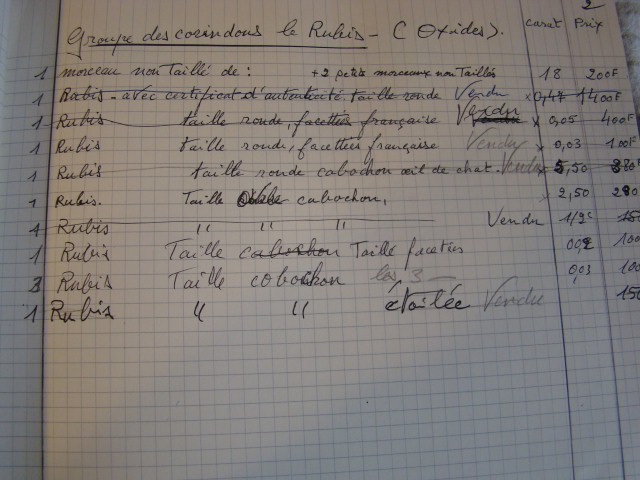 2
Groupe des corindons le Rubis - (Oxides). carat Prix
1 morceau non Taillé de : + 2 petits morceaux non Taillés 18 200F
1 Rubis - avec certificat d'autenticité. taille ronde Vendu x 0,47 1400F
1 Rubis taille ronde, facettes française Vendu x 0,05 400F
1 Rubis taille ronde, facettées française Vendu x 0,03 100F
1 Rubis taille ronde cabochon œil de chat. Vendu x 5,50 380F
1 Rubis. Taille cabochon, x 2,50 280
1 Rubis " " " Vendu 1/2c 150
1 Rubis Taille cabochon Taille facetées 100
3 Rubis Taille cobochon les 3 — 0,03 100
1 Rubis " " étoilée Vendu 150